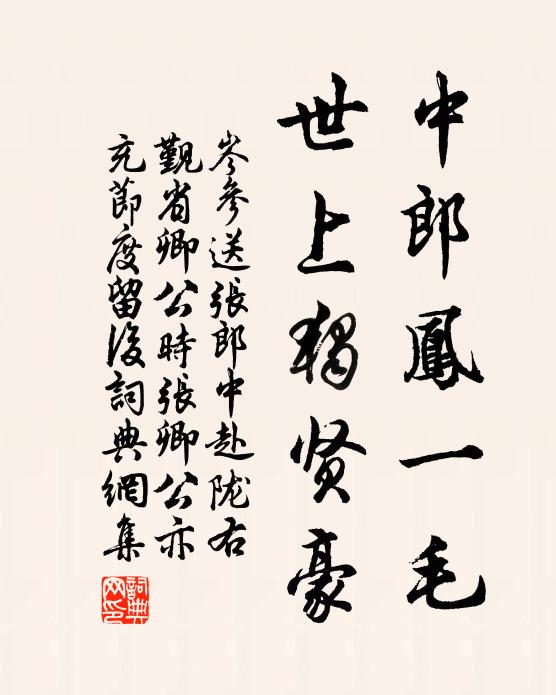 中郎鳳一毛
世上獨贤豪
岑參送張郎中赴陇右
觐省卿公時張卿公亦
充節度留後詞典網集
詞典网印